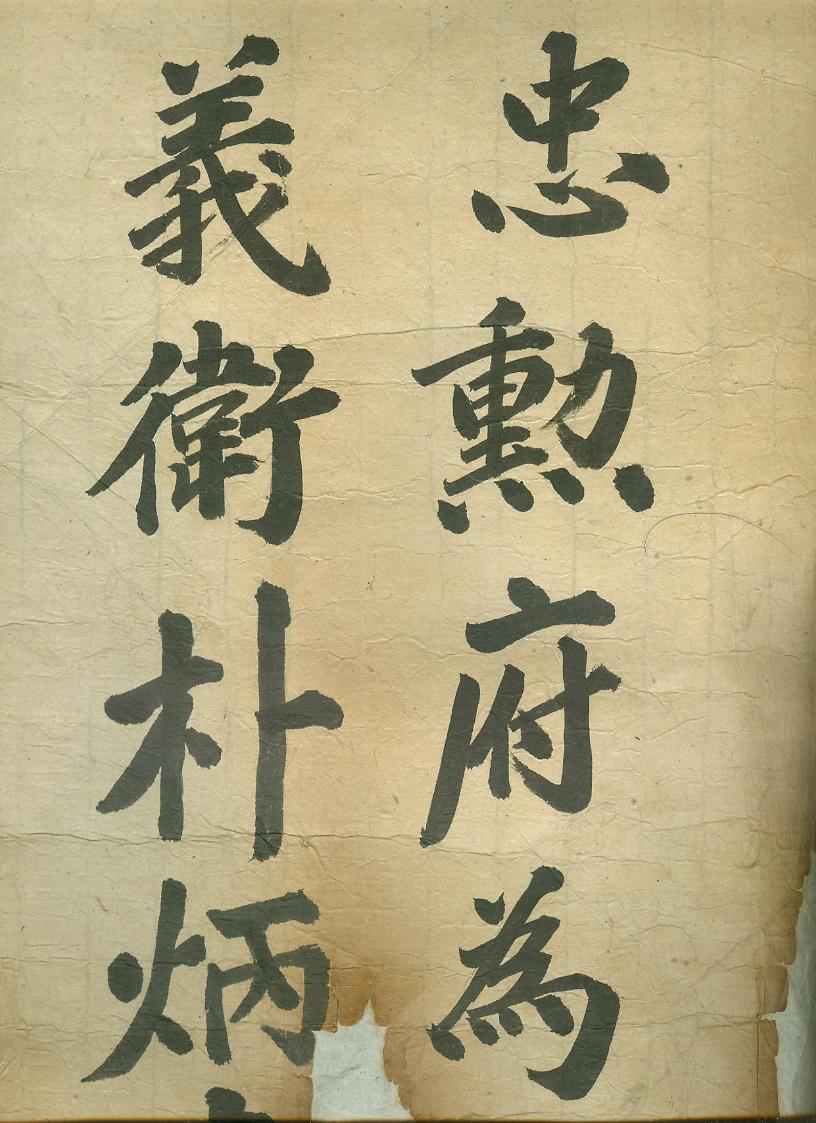 忠勳府為
義衛朴炳